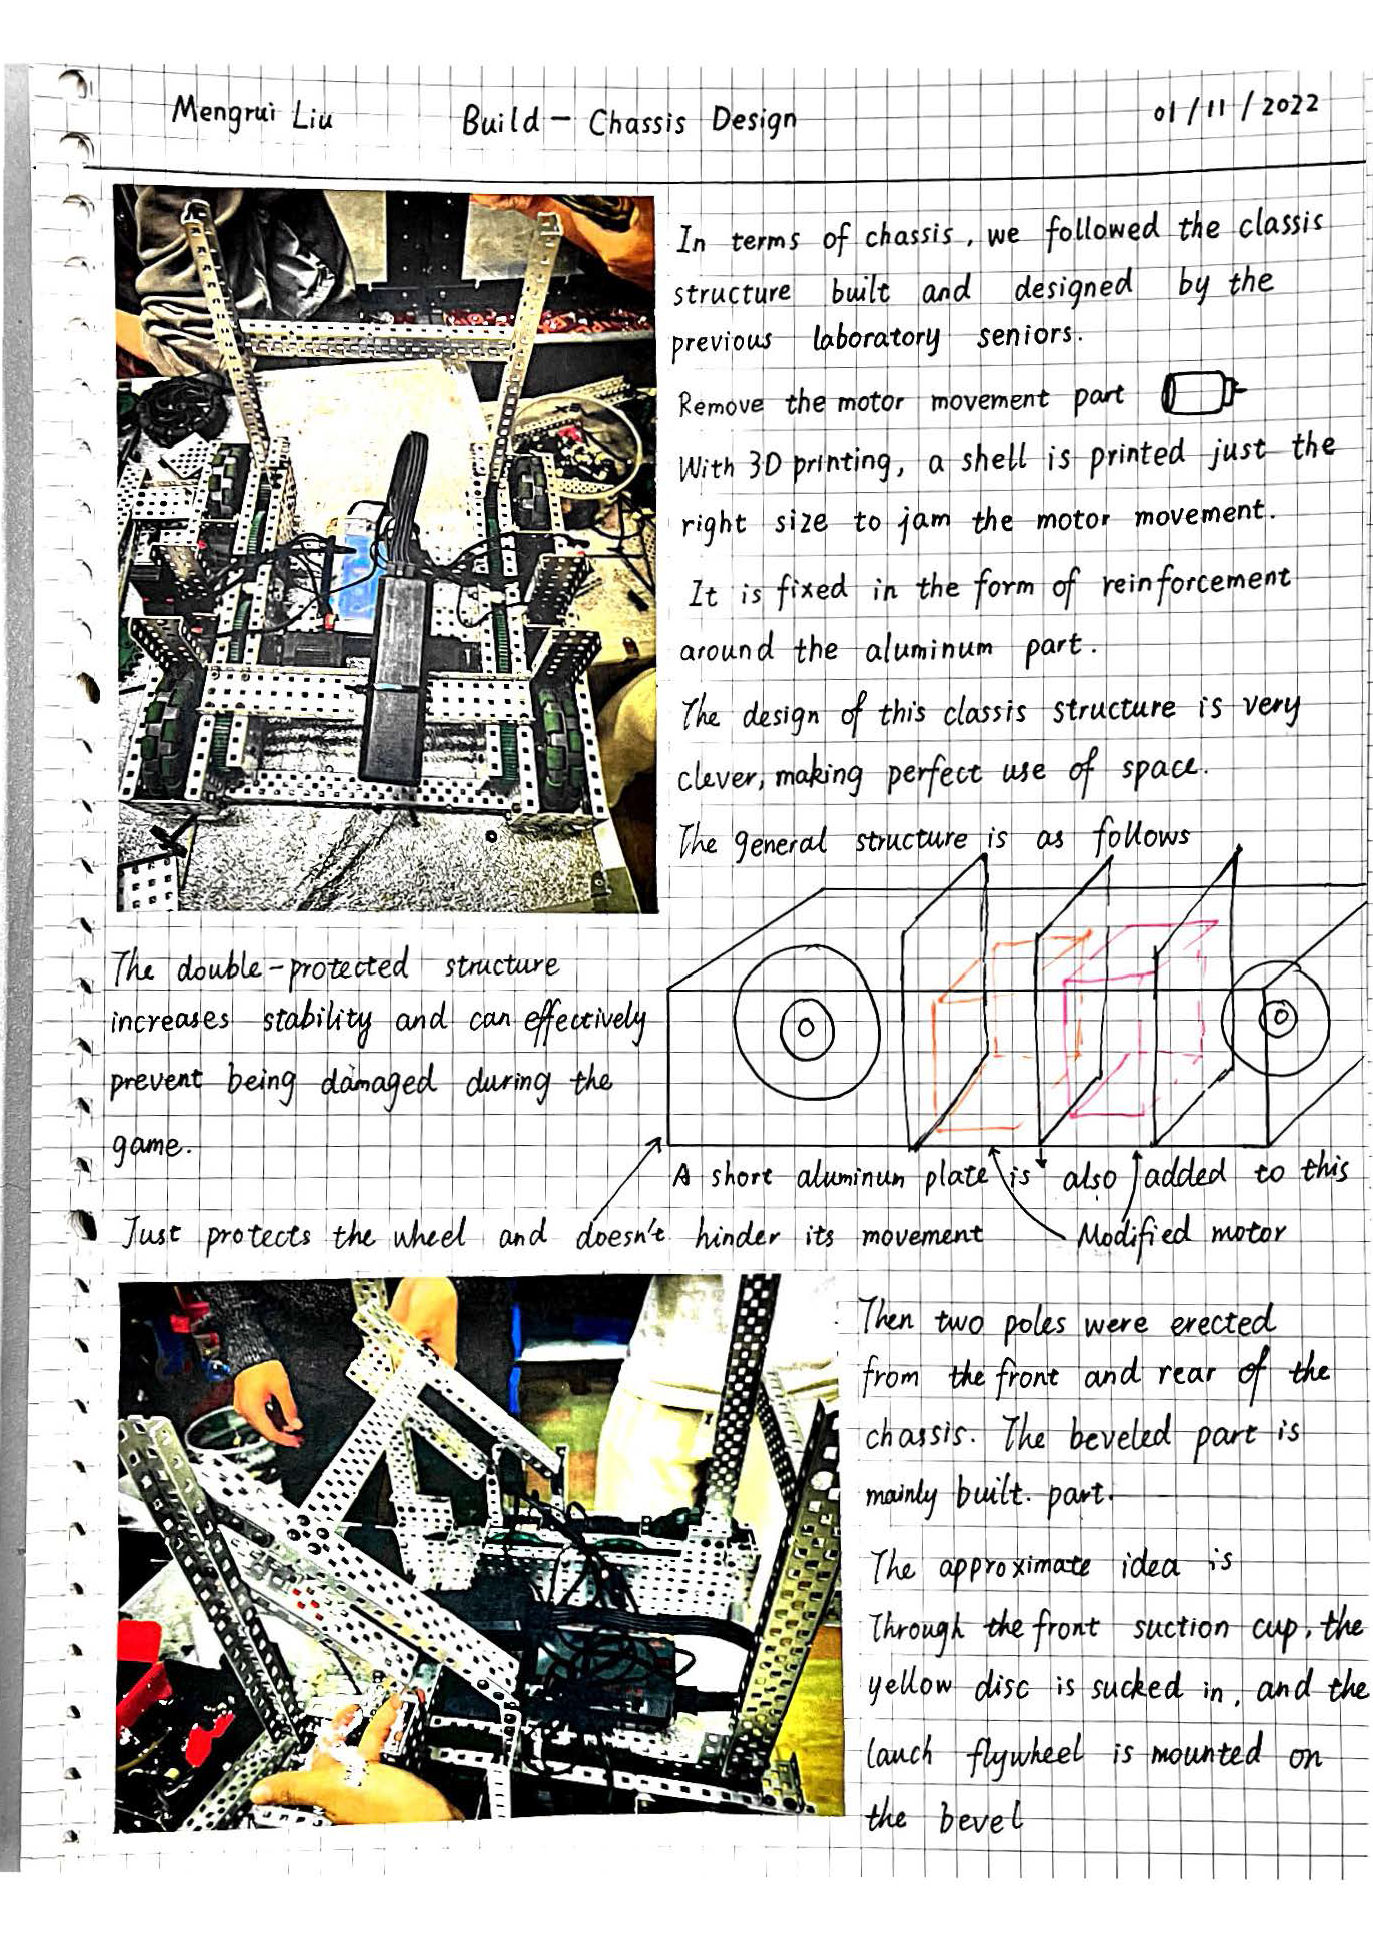 Mengrui Liu Build - Chassis Design 01/11/2022
In terms of chassis, we followed the classis
structure built and designed by the
previous laboratory seniors.
Remove the motor movement part
With 3D printing, a shell is printed just the
right size to jam the motor movement.
It is fixed in the form of reinforcement
around the aluminum part.
The design of this classis structure is very
clever, making perfect use of space.
The general structure is as follows
The double-protected structure
increases stability and can effectively
prevent being damaged during the
game.
A short aluminum plate is also added to this
Just protects the wheel and doesn't hinder its movement
Modified motor
Then two poles were erected
from the front and rear of the
chassis. The beveled part is
mainly built. part.
The approximate idea is
Through the front suction cup, the
yellow disc is sucked in, and the
lauch flywheel is mounted on
the bevel